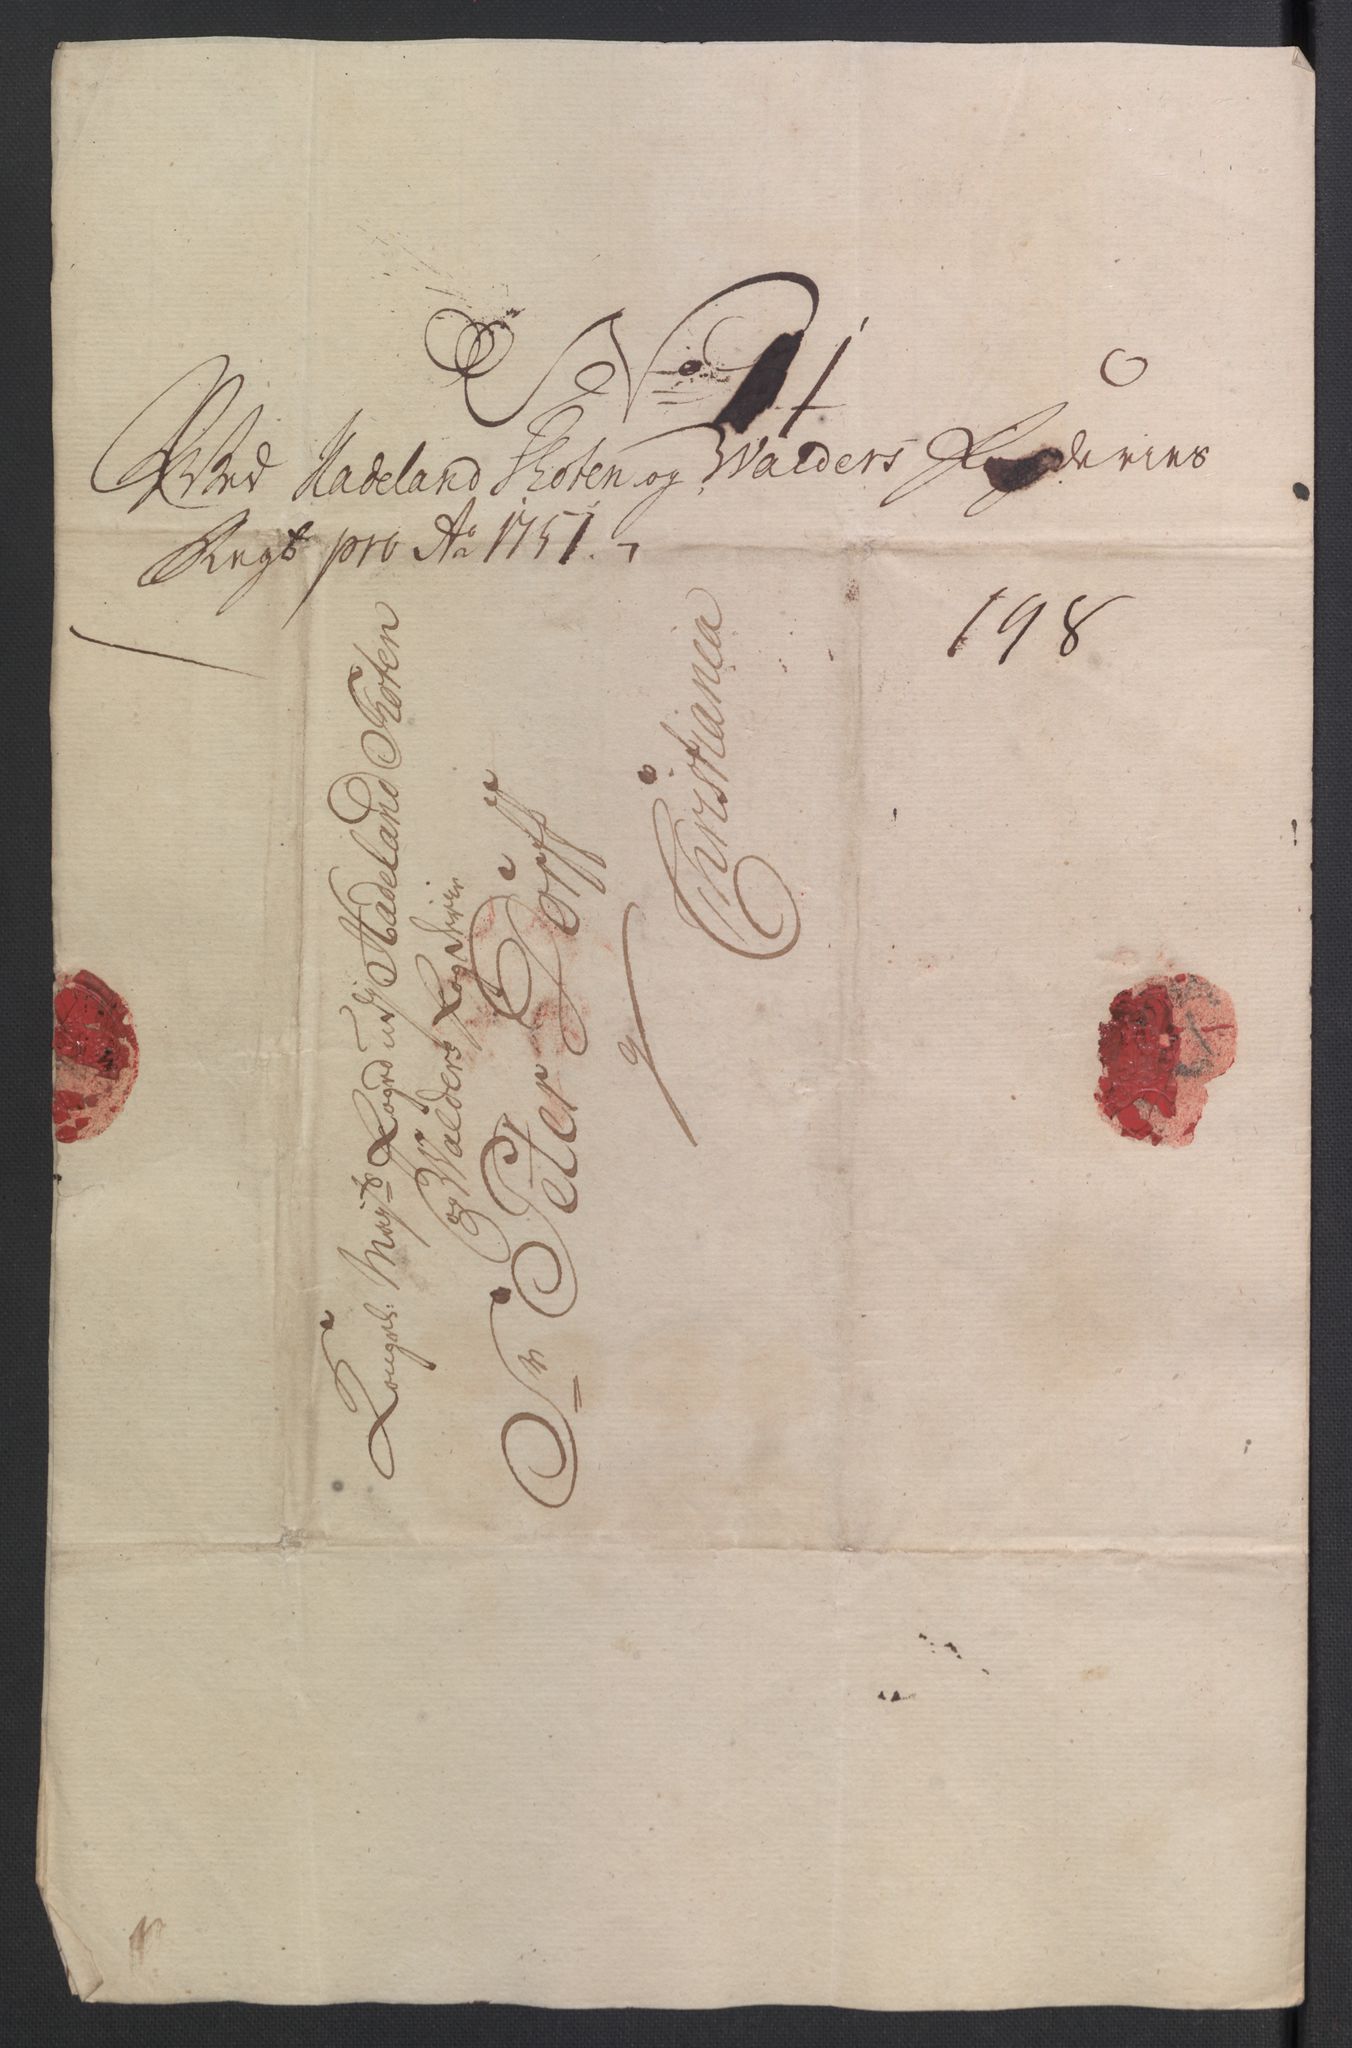 No 1
Ved Hadeland Thoten og Walders Fogderies
Regsk pro Ao 1751.
198
Kongel: Mayts Foged udj Hadeland Thoten
og Walders Fogderier
Sr Peter Torff
Christiania